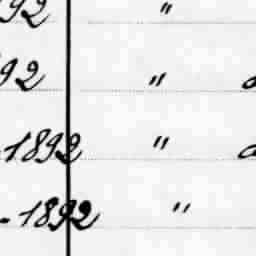 92 "
92 "
1892 "
- 1892 "